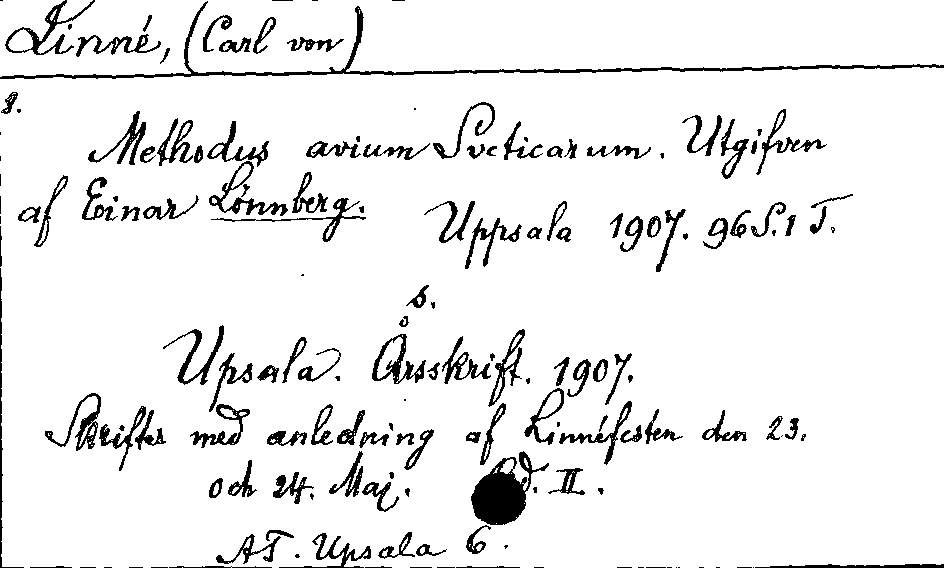 Linné, (Carl von)
8.
Methodus avium Sveticarum. Utgifven
af Einar Lönnberg.
Uppsala 1907. 96 S. 1 T.
s.
Upsala. Årsskrift. 1907.
Skrifter med anledning af Linnéfesten den 23.
och 24. Maj. Bd. II.
AT. Upsala 6.